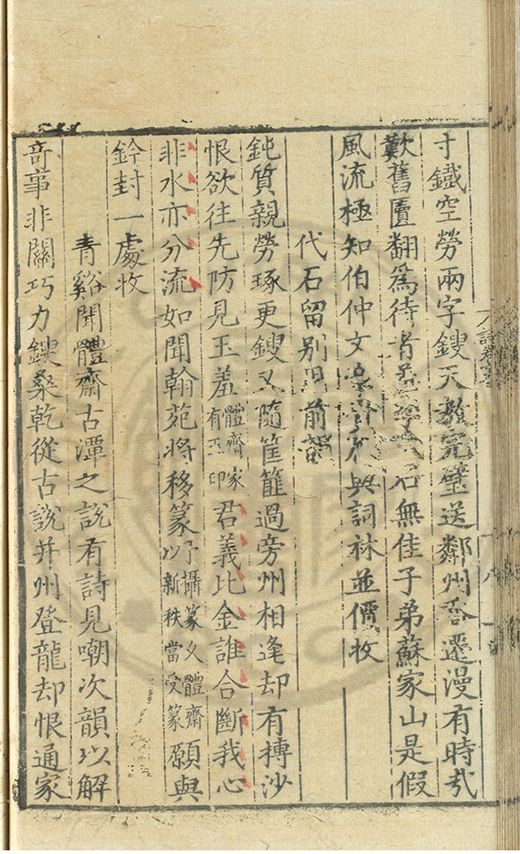 寸鐵空勞兩字鎪天教完璧送鄰州遷漫有時哉
歎舊匱翻爲待石無佳子弟蘇家山是假
風流極知伯仲文與詞林並價收
代石留別前
鈍質親勞琢更鎪又隨筐篚過旁州相逢却有摶沙
恨欲往先防見玉羞體齋家有玉印君義比金誰合斷我心
非水亦分流如聞翰苑將移篆予攝篆久體齋以新秩當受篆願與
鈐封一處收
青谿聞體齋古潭之說有詩見嘲次韻以解
奇事非關巧力鎪桑乾從古說并州登龍却恨通家